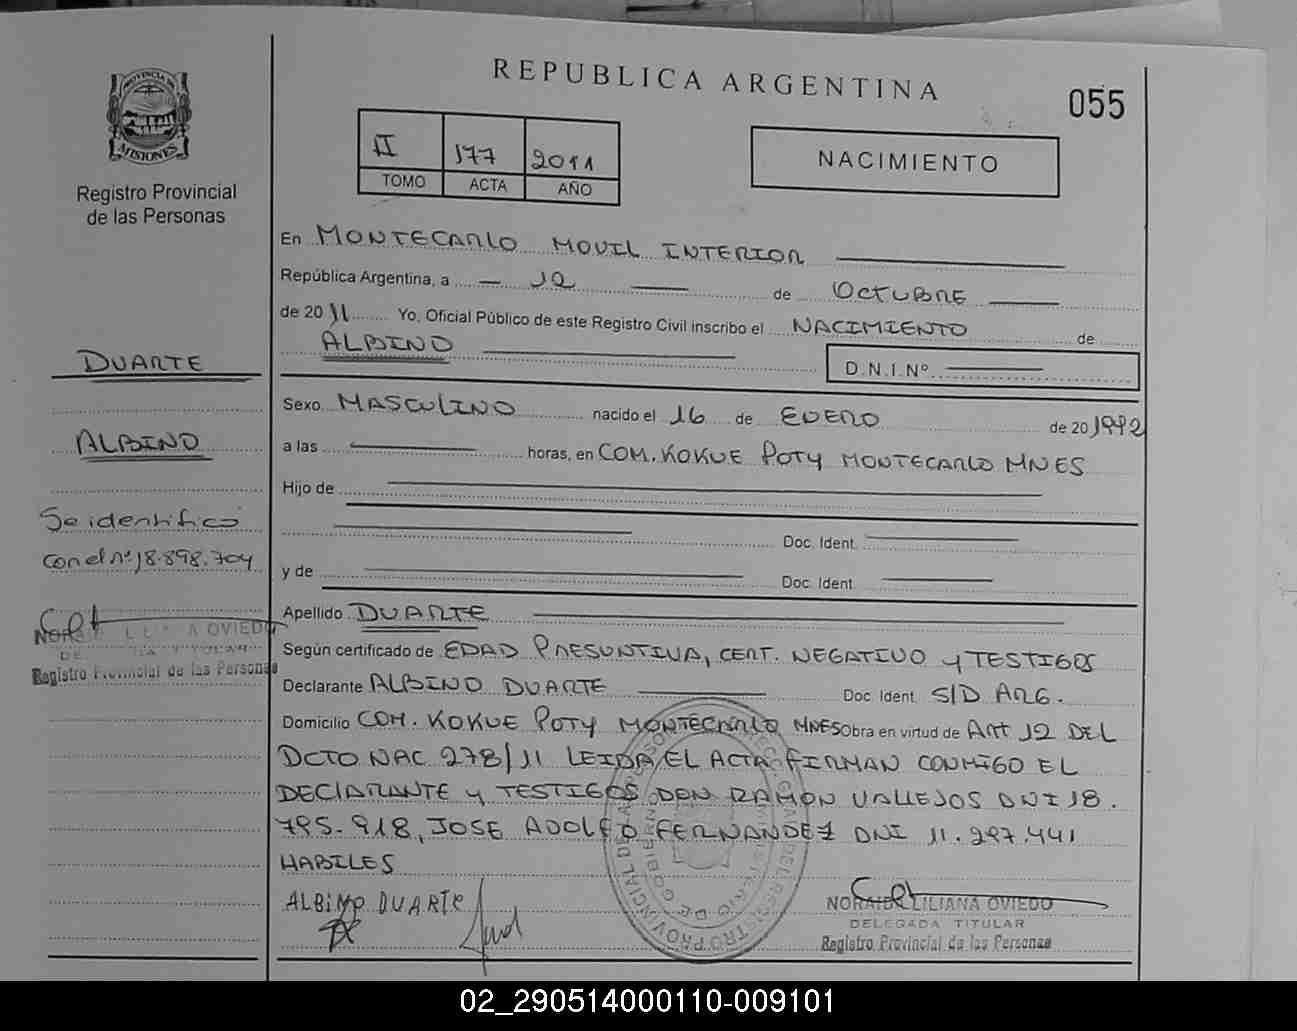 REPUBLICA ARGENTINA
055
PROVINCIA DE
MISIONES
Registro Provincial
de las Personas
II 177 2011
TOMO ACTA AÑO
NACIMIENTO
En MONTECARLO MOVIL INTERIOR
República Argentina, a 12 de OCTUBRE
de 2011 Yo, Oficial Público de este Registro Civil inscribo el NACIMIENTO de
ALBINO
D.N.I.Nº
DUARTE
ALBINO
Se identifico
con el nº 18.898.704
OVIEDO
Registro Provincial de las Personas
Sexo MASCULINO nacido el 16 de ENERO de 20 1992
a las horas, en COM. KOKUE POTY MONTECARLO MNES
Hijo de
Doc. Ident.
y de
Doc. Ident.
Apellido DUARTE
Según certificado de EDAD PRESUNTIVA, CERT. NEGATIVO y TESTIGOS
Declarante ALBINO DUARTE Doc. Ident. S/D ARG.
Domicilio COM. KOKUE POTY MONTECARLO MNES Obra en virtud de Art 12 DEL
DCTO NAC 278/11 LEIDA EL ACTA FIRMAN CONMIGO EL
DECLARANTE y TESTIGOS DON RAMON VALLEJOS DNI 18.
795.918, JOSE ADOLFO FERNANDEZ DNI 11.297.441
HABILES
ALBINO DUARTE
NORAIDE LILIANA OVIEDO
DELEGADA TITULAR
Registro Provincial de las Personas
02_290514000110-009101